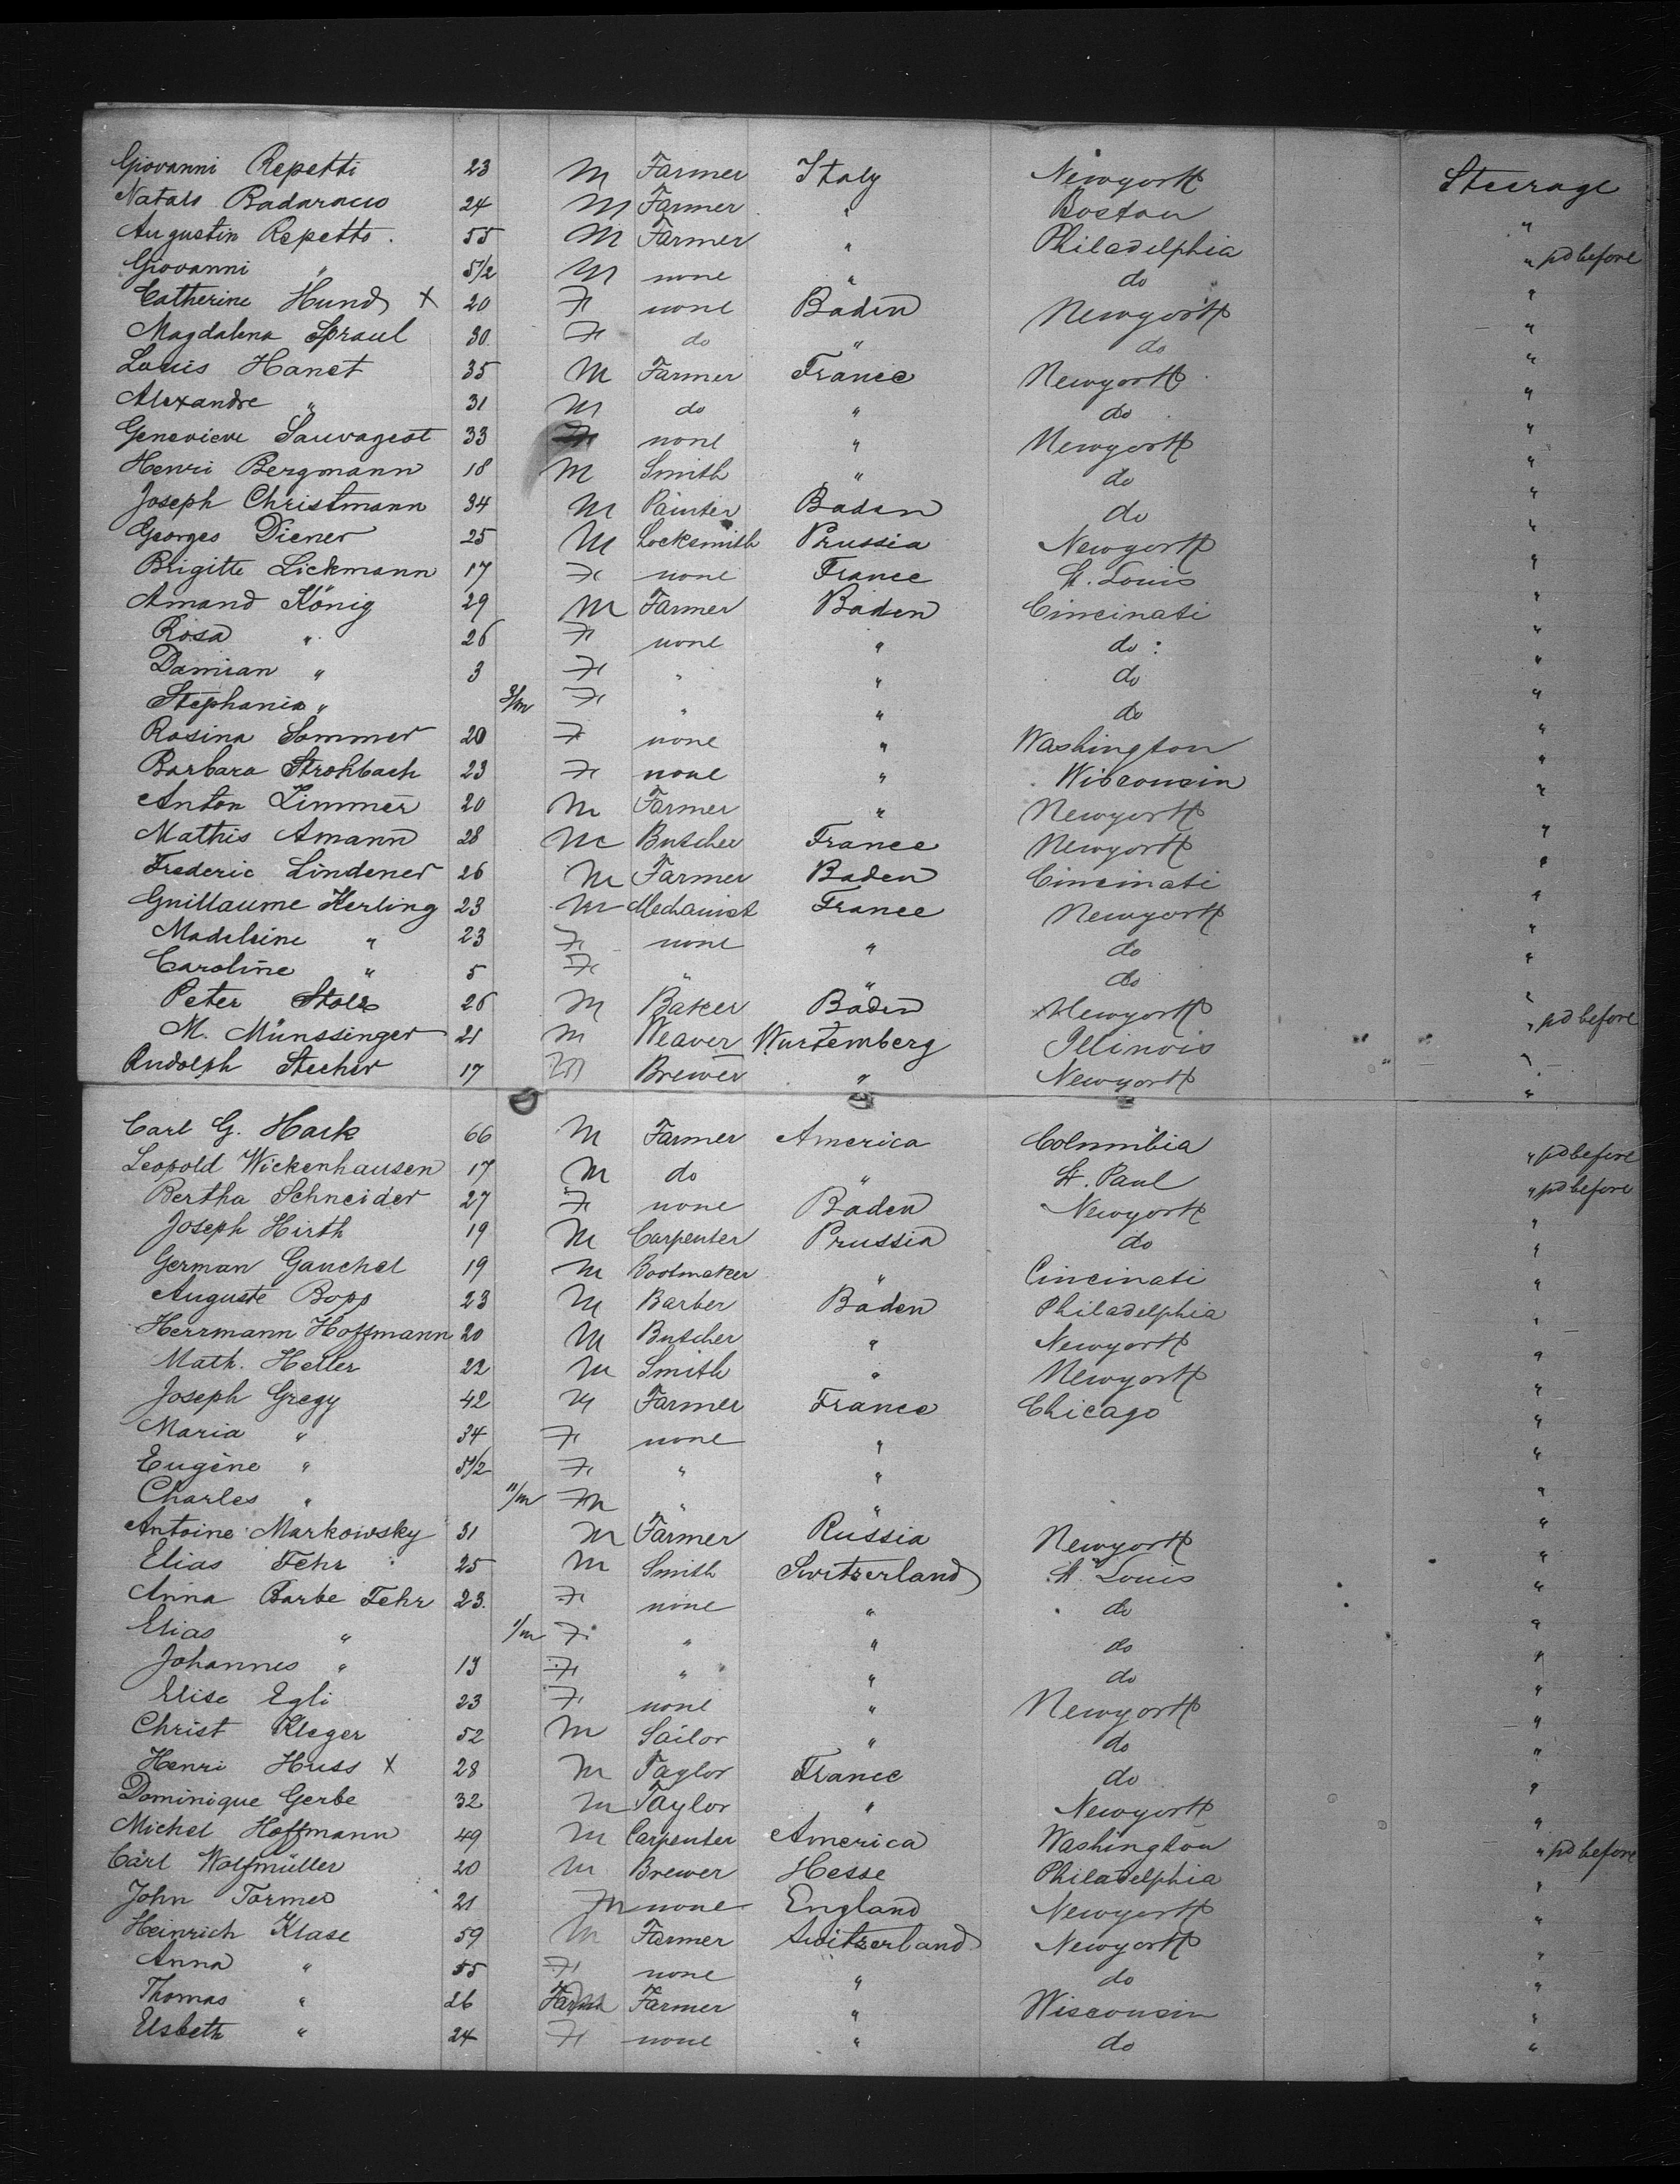 Giovanni Repetti 23 M Farmer Italy Newyork Steerage
Natals 24 M Farmer " Boston "
Augustin Repetto. 55 M Farmer " Philadelphia " pd before
Giovanni " 5 1/2 M none " do "
Catherine Hund x 20 F none Baden Newyork "
Magdalena Spraul 30. F do " do "
Louis Hanet 35 M Farmer France Newyork "
Alexandre " 31 M do " do "
Genevieve Sauvageot 33 F none " Newyork "
Henri Bergmann 18 M Smith " do "
Joseph Christmann 34 M Painter Baden do "
Georges Diener 25 M Locksmith Prussia Newyork "
Brigitte Lickmann 17 F none France St. Louis "
Amand König 29 M Farmer Baden Cincinati "
Rosa " 26 F none " do "
Damian " 3 F " " do "
Stephania " 3/m F " " do "
Rosina Sommer 20 F none " Washington "
Barbara Strohbach 23 F none " Wisconsin "
Anton Zimmer 20 M Farmer " Newyork "
Mathis Amann 28 M Butcher France Newyork "
Frederic Lindener 26 M Farmer Baden Cincinati "
Guillaume Kerling 23 M Mechanist France Newyork "
Madeleine " 23 F none " do "
Caroline " 5 F " " do "
Peter Stolz 26 M Baker Baden Newyork "
M. Münssinger 21 M Weaver Wurtemberg Illinois " pd before
Rudolph Stecher 17 M Brewer " Newyork "
Carl G. Hack 66 M Farmer America Columbia " pd before
Leopold Wickenhausen 17 M do " St. Paul " pd before
Bertha Schneider 27 F none Baden Newyork "
Joseph Hirth 19 M Carpenter Prussia do "
German Gauchel 19 M Bootmaker " Cincinati "
Auguste Bopp 23 M Barber Baden Philadelphia "
Herrmann Hoffmann 20 M Butcher " Newyork "
Math. Heller 22 M Smith " Newyork "
Joseph Gregy 42 M Farmer France Chicago "
Maria " 34 F none " "
Eugène " 5 1/2 F " " "
Charles " 11/m M " " "
Antoine Markowsky 31 M Farmer Russia Newyork "
Elias Fehr 25 M Smith Switzerland St. Louis "
Anna Barbe Fehr 23. F none " do "
Elias " 1/m F " " do "
Johannes " 13 F " " do "
Elise Egli 23 F none " Newyork "
Christ Kleger 52 M Sailor " do "
Henri Huss x 28 M Taylor France do "
Dominique Gerbe 32 M Taylor " Newyork "
Michel Hoffmann 49 M Carpenter America Washington " pd before
Carl Wolfmüller 20 M Brewer Hesse Philadelphia "
John 21 M none England Newyork "
Heinrich Klase 59 M Farmer Switzerland Newyork "
Anna " 55 F none " do "
Thomas " 26 M Farmer " Wisconsin "
Elsbeth " 24 F none " do "